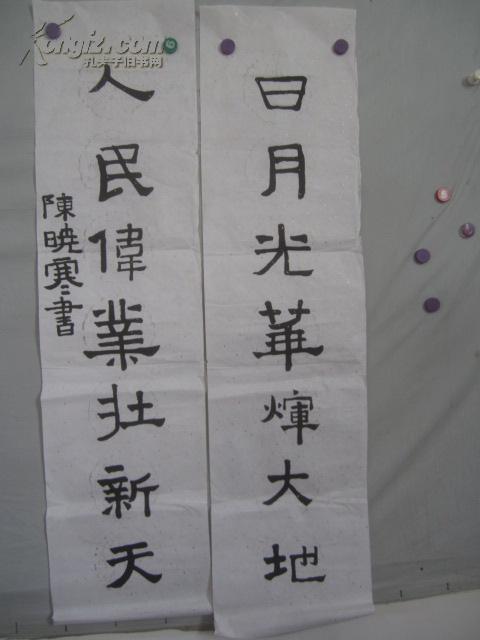 日月光華煇大地
人民偉業壯新天
陳曉寒書
Kongfz.com
孔夫子旧书网